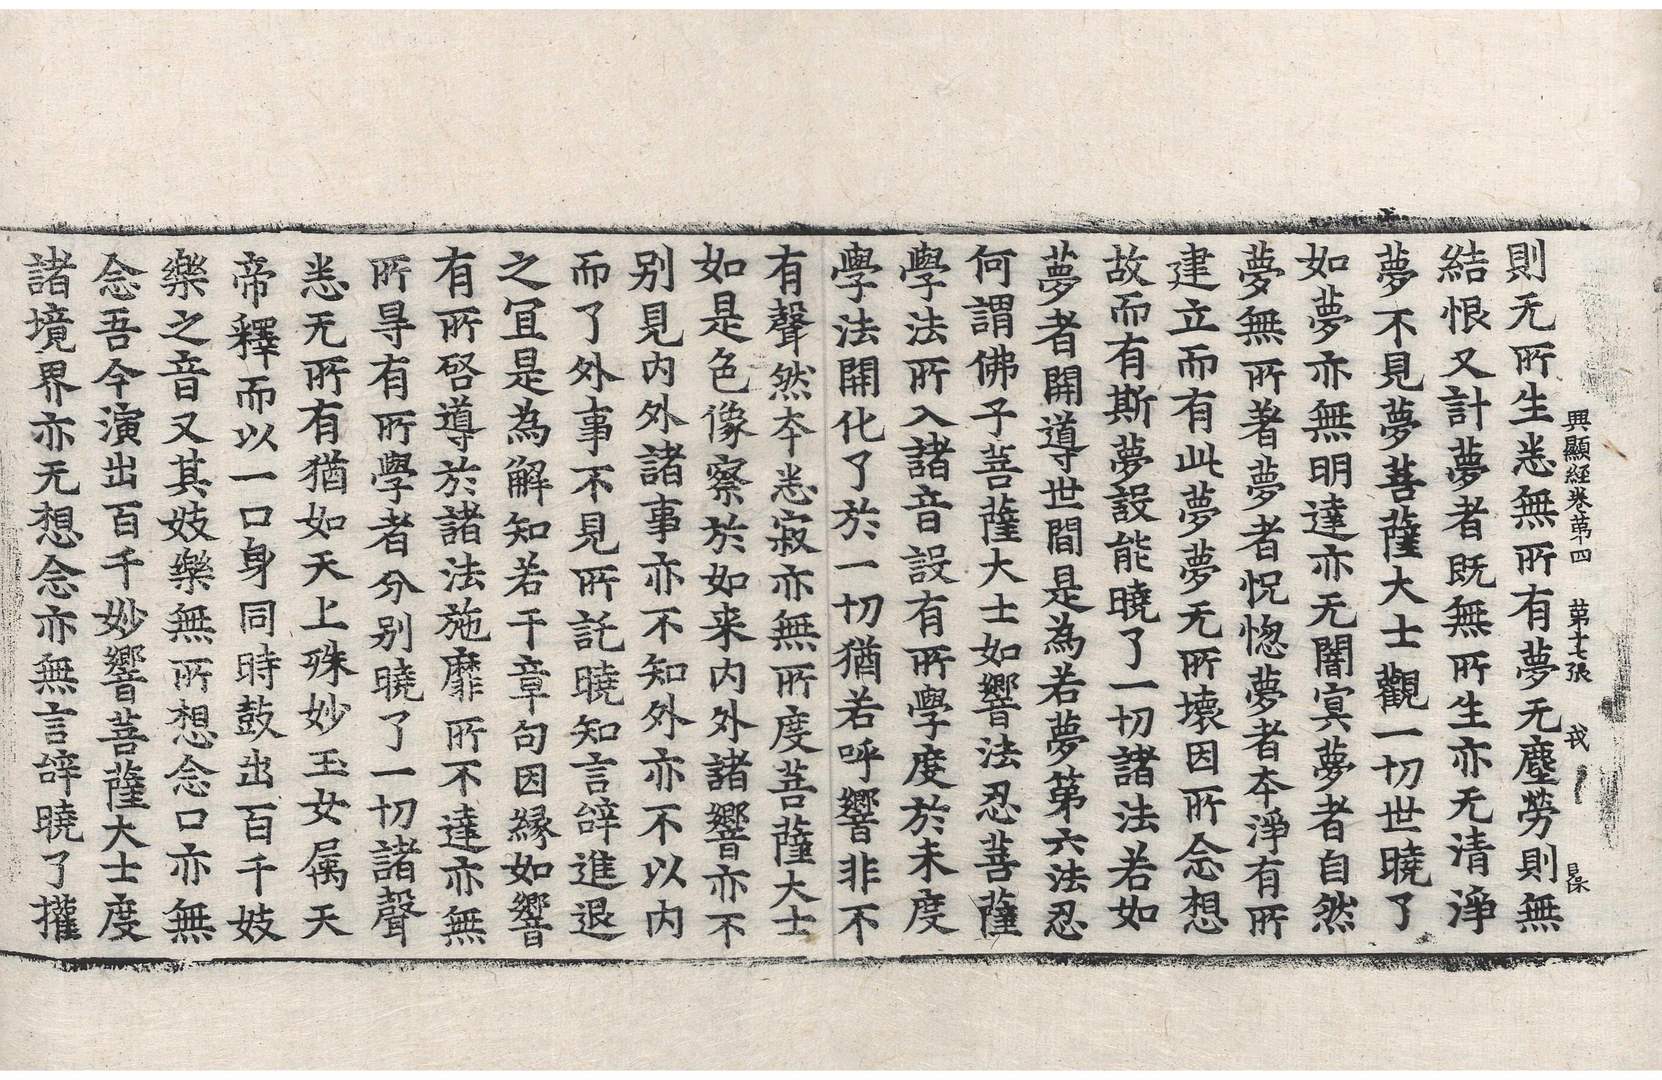 興顯經卷第四 第十七張 戎
則无所生悉無所有夢无塵勞則無
結恨又計夢者既無所生亦无清淨
夢不見夢菩薩大士觀一切世曉了
如夢亦無明達亦无闇冥夢者自然
夢無所著夢者怳惚夢者本淨有所
建立而有此夢夢无所壞因所念想
故而有斯夢設能曉了一切諸法若如
夢者開導世間是為若夢第六法忍
何謂佛子菩薩大士如響法忍菩薩
學法所入諸音設有所學度於未度
學法開化了於一切猶若呼響非不
有聲然本悉寂亦無所度菩薩大士
如是色像察於如来内外諸響亦不
别見内外諸事亦不知外亦不以内
而了外事不見所託曉知言辝進退
之冝是為解知若干章句因縁如響
有所啓導於諸法施靡所不達亦無
所㝵有所學者分别曉了一切諸聲
悉无所有猶如天上殊妙玉女属天
帝釋而以一口身同時鼓出百千妓
樂之音又其妓樂無所想念口亦無
念吾今演出百千妙響菩薩大士度
諸境界亦无想念亦無言辝曉了攉